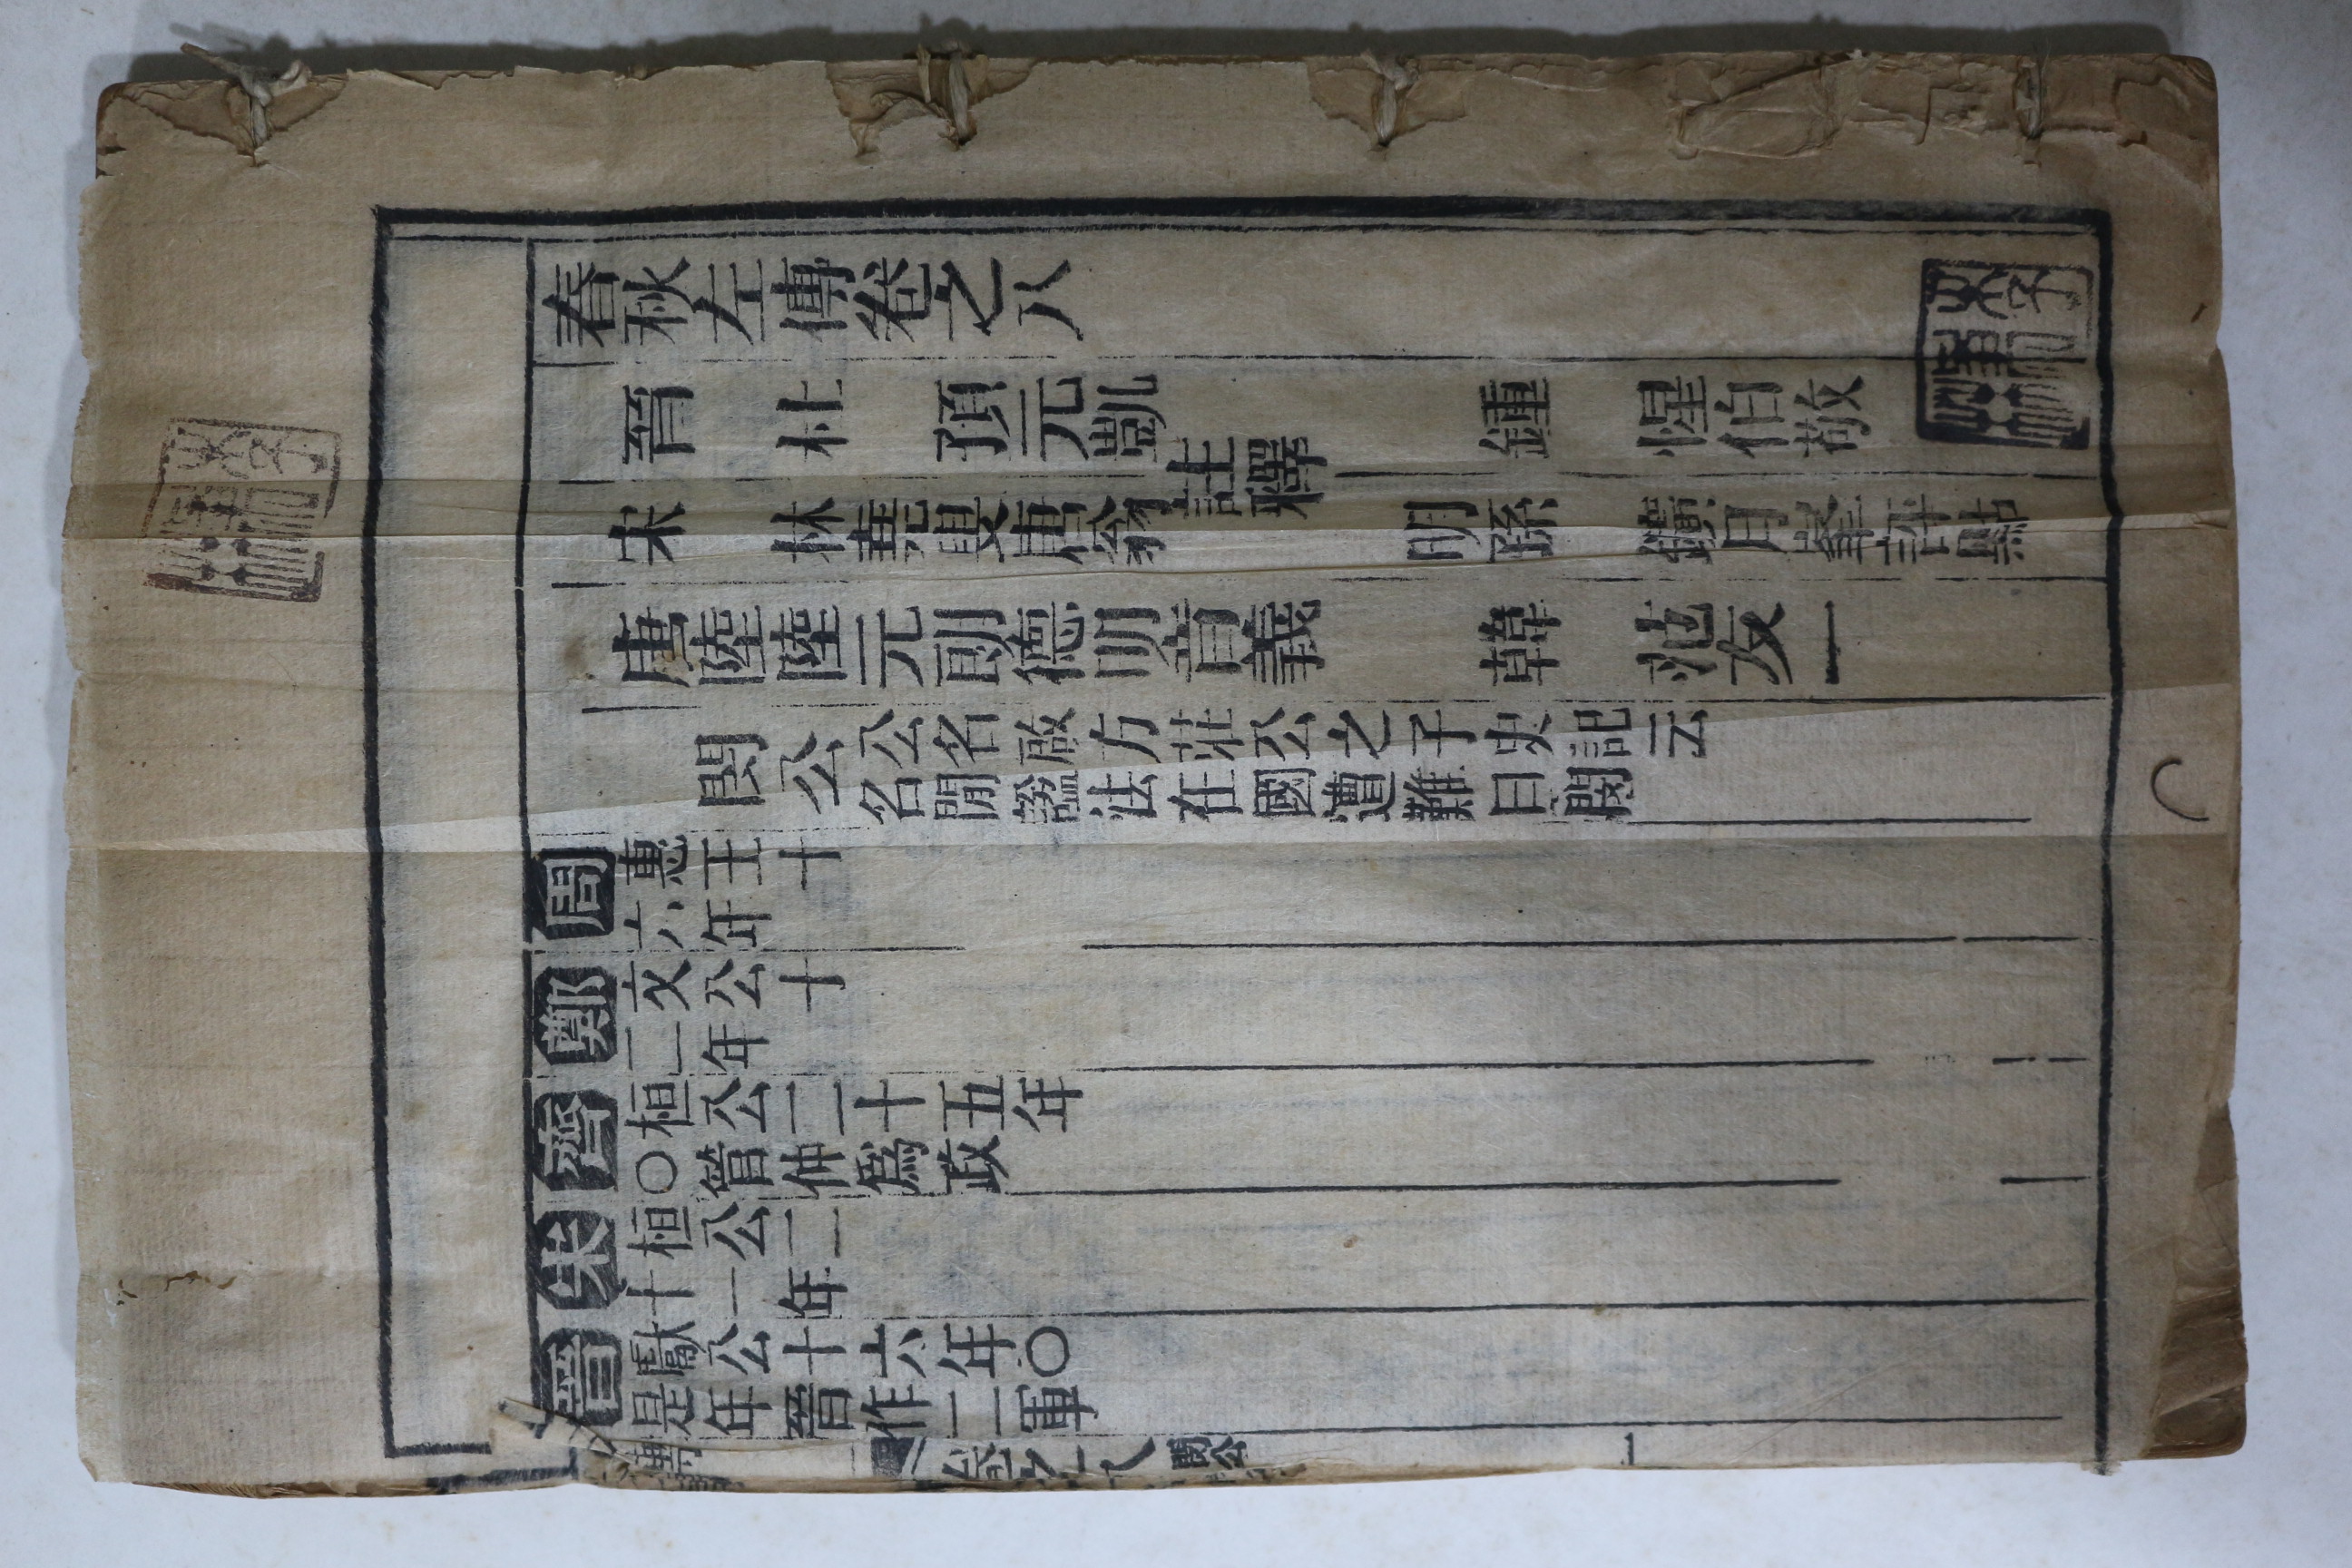 春秋左傳卷之八
晉 杜 預元凱 註釋 鍾 惺伯敬
宋 林堯叟唐翁 明孫 鑛月峯評點
唐陸陸元朗德明音義 韓 范友一
閔公 公名啟方莊公之子史記云
名開諡法在國遭難曰閔
周 惠王十
六年
鄭 文公十
二年
齊 桓公二十五年
○管仲爲政
宋 桓公二
十一年
晉 獻公十六年○
是年晉作二軍
卷之八 閔公 一